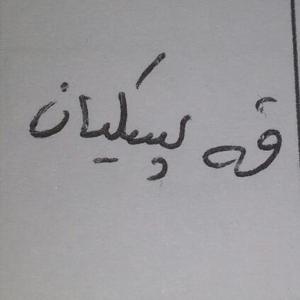 قه پسکیان